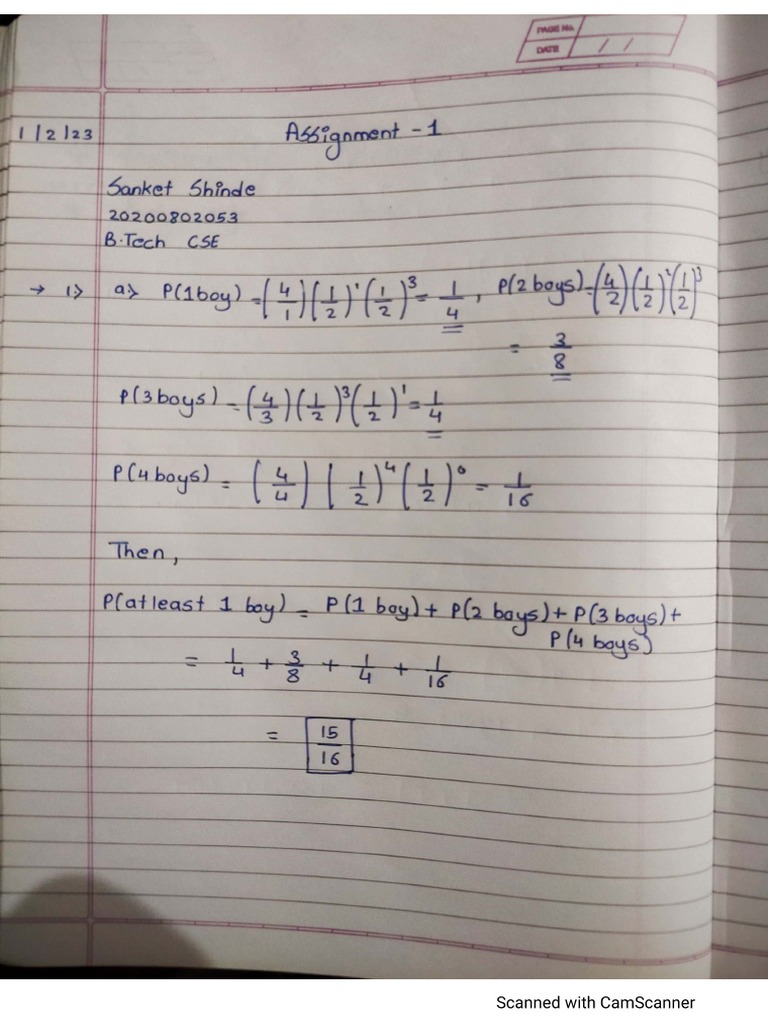 PAGE No.
DATE / /
1/2/23 Assignment - 1
Sanket Shinde
20200802053
B.Tech CSE
→ 1> a> P(1boy) = (4/1)(1/2)¹(1/2)³ = 1/4, P(2 boys) = (4/2)(1/2)²(1/2)³
= 3/8
P(3boys) = (4/3)(1/2)³(1/2)¹ = 1/4
P(4boys) = (4/4)(1/2)⁴(1/2)⁰ = 1/16
Then,
P(atleast 1 boy) = P(1 boy) + P(2 boys) + P(3 boys) +
P(4 boys)
= 1/4 + 3/8 + 1/4 + 1/16
= 15/16
Scanned with CamScanner